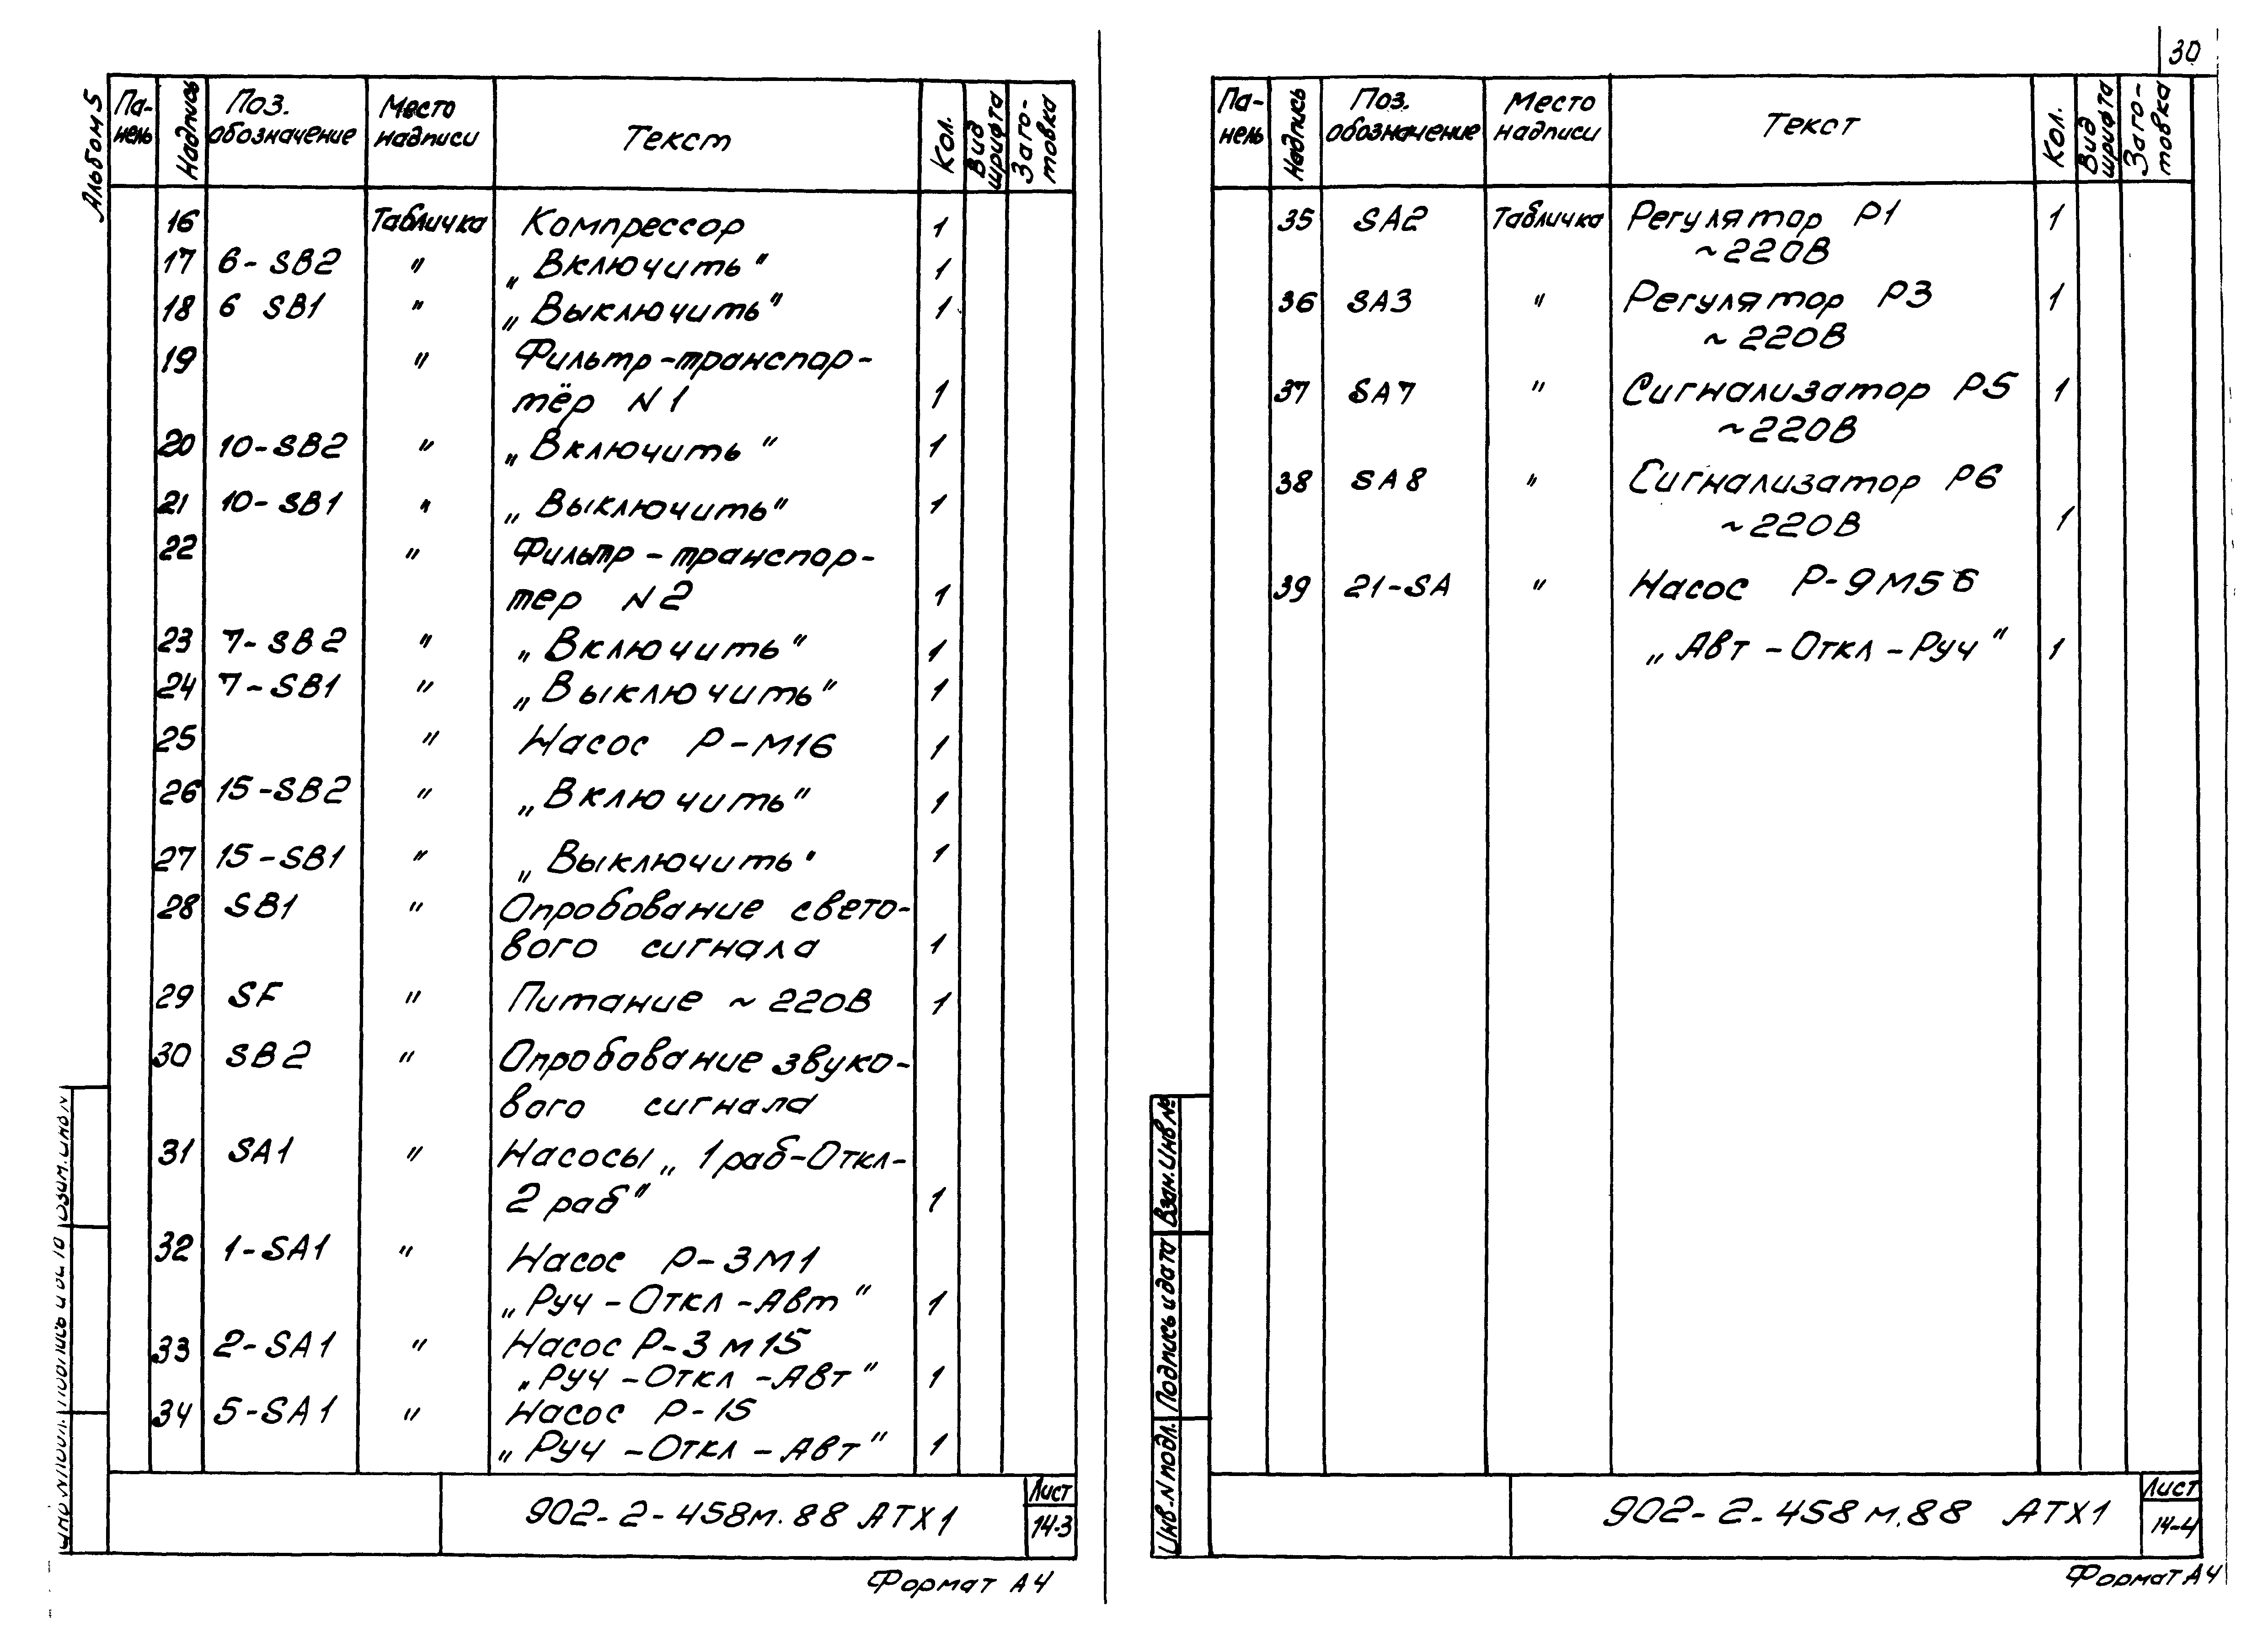 Альбом 5
Па-нель Надпись Поз. обозначение Место надписи Текст Кол. Вид шрифта Заго-товка
16 Табличка Компрессор 1
17 6-SB2 " „Включить" 1
18 6 SB1 " „Выключить" 1
19 " Фильтр-транспор-
тёр N1 1
20 10-SB2 " „Включить" 1
21 10-SB1 " „Выключить" 1
22 " Фильтр-транспор-
тер N2 1
23 7-SB2 " „Включить" 1
24 7-SB1 " „Выключить" 1
25 " Насос Р-М16 1
26 15-SB2 " „Включить" 1
27 15-SB1 " „Выключить" 1
28 SB1 " Опробование свето-
вого сигнала 1
29 SF " Питание ~220В 1
30 SB2 " Опробование звуко-
вого сигнала
31 SA1 " Насосы „1раб-Откл-
2раб" 1
32 1-SA1 " Насос Р-3М1
„Руч-Откл-Авт" 1
33 2-SA1 " Насос Р-3М15
„Руч-Откл-Авт" 1
34 5-SA1 " Насос Р-15
„Руч-Откл-Авт" 1
902-2-458м.88 АТХ1
Лист
14-3
Формат А4
30
Па-нель Надпись Поз. обозначение Место надписи Текст Кол. Вид шрифта Заго-товка
35 SA2 Табличка Регулятор Р1 1
~220В
36 SA3 " Регулятор Р3 1
~220В
37 SA7 " Сигнализатор Р5 1
~220В
38 SA8 " Сигнализатор Р6
~220В 1
39 21-SA " Насос Р-9М5б
„Авт-Откл-Руч" 1
Инв.N подл. Подпись и дата Взам.Инв№
902-2-458м.88 АТХ1
Лист
14-4
Формат А4